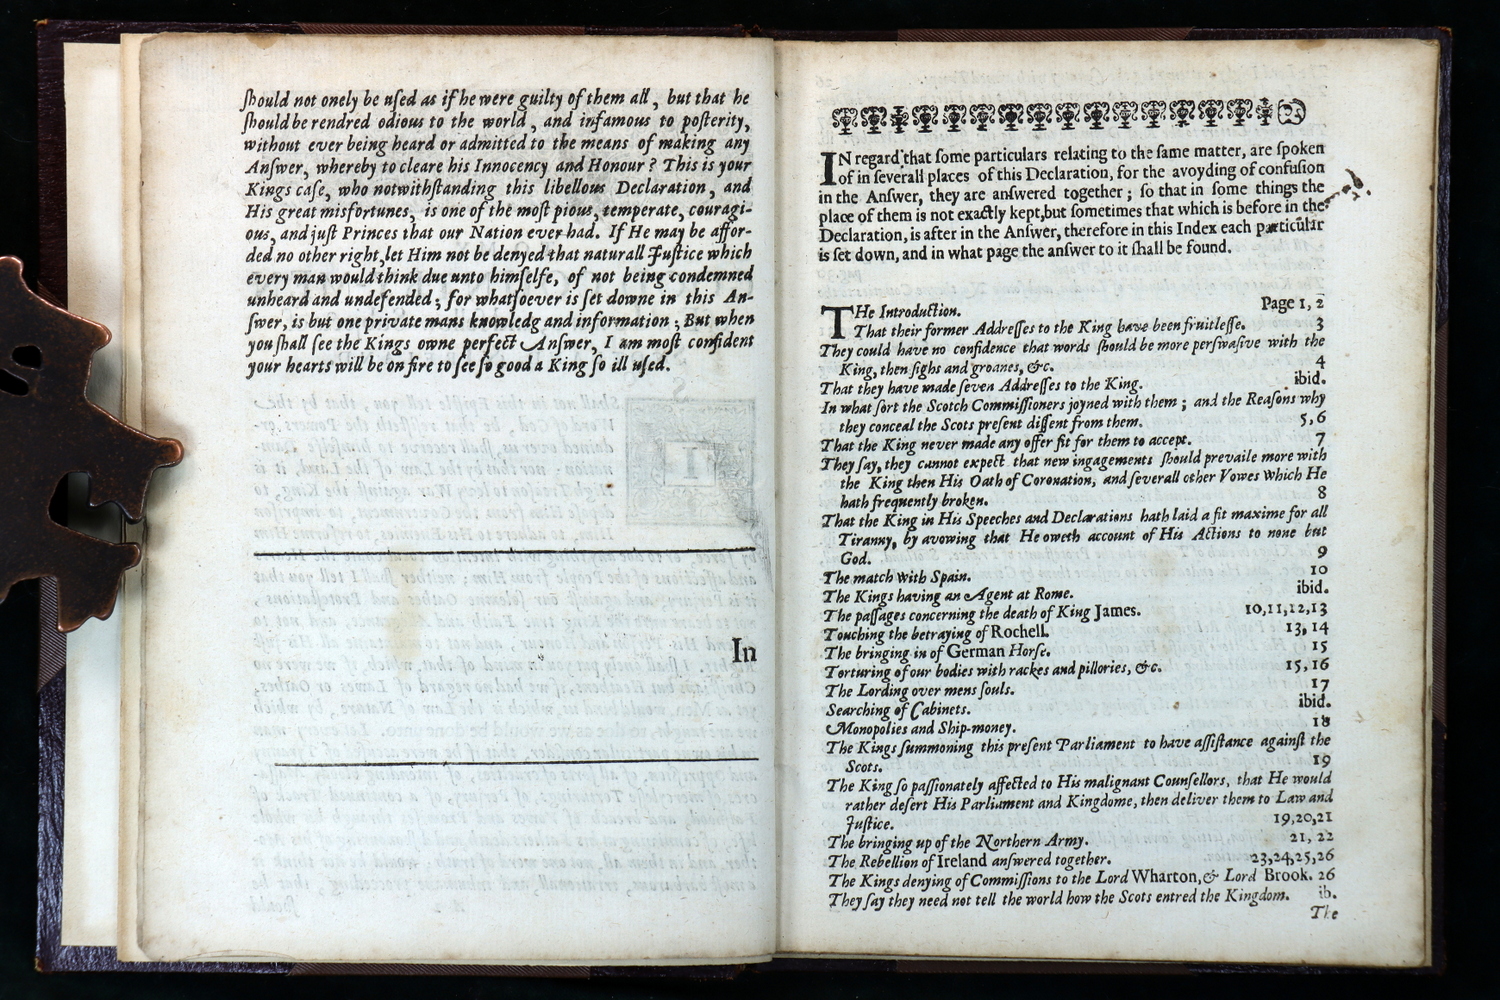 ſhould not onely be uſed as if he were guilty of them all, but that he
ſhould be rendred odious to the world, and infamous to poſterity,
without ever being heard or admitted to the means of making any
Anſwer, whereby to cleare his Innocency and Honour? This is your
Kings caſe, who notwithſtanding this libellous Declaration, and
His great misfortunes, is one of the moſt pious, temperate, couragi-
ous, and juſt Princes that our Nation ever had. If He may be affor-
ded no other right, let Him not be denyed that naturall Juſtice which
every man would think due unto himſelfe, of not being condemned
unheard and undefended; for whatſoever is ſet downe in this An-
ſwer, is but one private mans knowledg and information; But when
you ſhall ſee the Kings owne perfect Anſwer, I am moſt confident
your hearts will be on fire to ſee ſo good a King ſo ill uſed.
In
IN regard that ſome particulars relating to the ſame matter, are ſpoken
of in ſeverall places of this Declaration, for the avoyding of confuſion
in the Anſwer, they are anſwered together; ſo that in ſome things the
place of them is not exactly kept, but ſometimes that which is before in the
Declaration, is after in the Anſwer, therefore in this Index each particular
is ſet down, and in what page the anſwer to it ſhall be found.
THe Introduction. Page 1, 2
That their former Addreſſes to the King have been fruitleſſe. 3
They could have no confidence that words ſhould be more perſwaſive with the
King, then ſighs and groanes, &c. 4
That they have made ſeven Addreſſes to the King. ibid.
In what ſort the Scotch Commiſſioners joyned with them; and the Reaſons why
they conceal the Scots preſent diſſent from them. 5, 6
That the King never made any offer fit for them to accept. 7
They ſay, they cannot expect that new ingagements ſhould prevaile more with
the King then His Oath of Coronation, and ſeverall other Vowes which He
hath frequently broken. 8
That the King in His Speeches and Declarations hath laid a fit maxime for all
Tiranny, by avowing that He oweth account of His Actions to none but
God. 9
The match with Spain. 10
The Kings having an Agent at Rome. ibid.
The paſſages concerning the death of King James. 10,11,12,13
Touching the betraying of Rochell. 13, 14
The bringing in of German Horſe. 15
Torturing of our bodies with rackes and pillories, &c. 15, 16
The Lording over mens ſouls. 17
Searching of Cabinets. ibid.
Monopolies and Ship-money. 18
The Kings ſummoning this preſent Parliament to have aſſiſtance againſt the
Scots. 19
The King ſo paſſionately affected to His malignant Counſellors, that He would
rather deſert His Parliament and Kingdome, then deliver them to Law and
Juſtice. 19,20,21
The bringing up of the Northern Army. 21, 22
The Rebellion of Ireland anſwered together. 23,24,25,26
The Kings denying of Commiſſions to the Lord Wharton, & Lord Brook. 26
They ſay they need not tell the world how the Scots entred the Kingdom. ib.
The